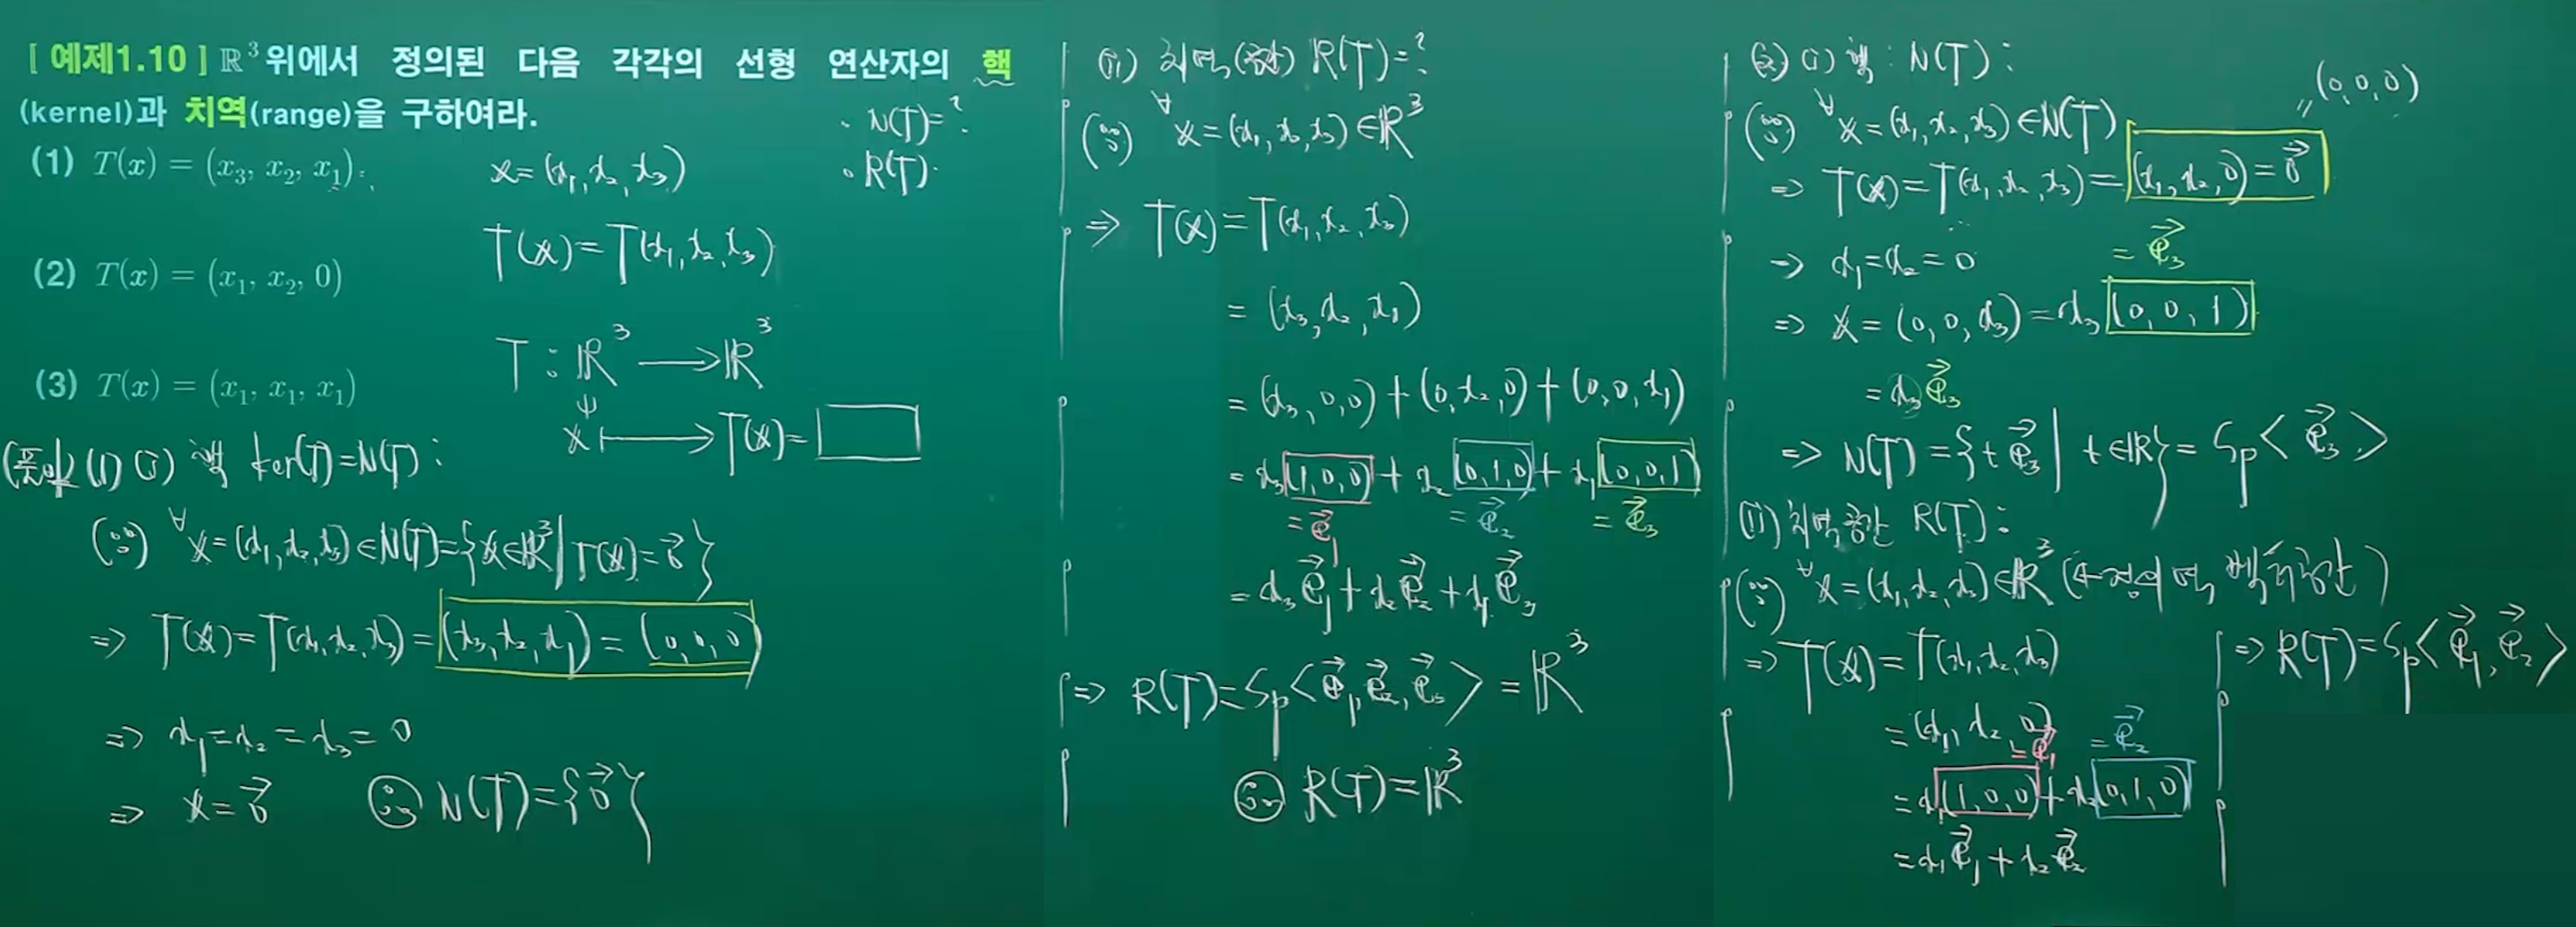 [ 예제1.10 ] ℝ³위에서 정의된 다음 각각의 선형 연산자의 핵
(kernel)과 치역(range)을 구하여라.
· N(T)=?
(1) T(x) = (x₃, x₂, x₁)
x=(x₁,x₂,x₃)
· R(T)
T(x)=T(x₁,x₂,x₃)
(2) T(x) = (x₁, x₂, 0)
T : ℝ³ → ℝ³
(3) T(x) = (x₁, x₁, x₁)
x ↦ T(x)=
(풀이) (1) (i) 핵 ker(T)=N(T) :
(∵) ∀x=(x₁,x₂,x₃)∈N(T)={x∈ℝ³|T(x)=0⃗}
⇒ T(x)=T(x₁,x₂,x₃)=(x₃,x₂,x₁)=(0,0,0)
⇒ x₁=x₂=x₃=0
⇒ x=0⃗ ∴ N(T)={0⃗}
(ii) 치역(공간) R(T)=?
(∵) ∀x=(x₁,x₂,x₃)∈ℝ³
⇒ T(x)=T(x₁,x₂,x₃)
=(x₃,x₂,x₁)
=(x₃,0,0)+(0,x₂,0)+(0,0,x₁)
=x₃(1,0,0)+x₂(0,1,0)+x₁(0,0,1)
=e⃗₁ =e⃗₂ =e⃗₃
=x₃e⃗₁+x₂e⃗₂+x₁e⃗₃
⇒ R(T)=Sp<e⃗₁,e⃗₂,e⃗₃>=ℝ³
∴ R(T)=ℝ³
(2) (i) 핵 : N(T) :
(0,0,0)
(∵) ∀x=(x₁,x₂,x₃)∈N(T)
⇒ T(x)=T(x₁,x₂,x₃)=(x₁,x₂,0)=0⃗
⇒ x₁=x₂=0
=e⃗₃
⇒ x=(0,0,x₃)=x₃(0,0,1)
=x₃e⃗₃
⇒ N(T)={te⃗₃|t∈ℝ}=Sp<e⃗₃>
(ii) 치역공간 R(T) :
(∵) ∀x=(x₁,x₂,x₃)∈ℝ³ (←정의역 벡터공간)
⇒ T(x)=T(x₁,x₂,x₃)
=(x₁,x₂,0)
=e⃗₁ =e⃗₂
=x₁(1,0,0)+x₂(0,1,0)
=x₁e⃗₁+x₂e⃗₂
⇒ R(T)=Sp<e⃗₁,e⃗₂>